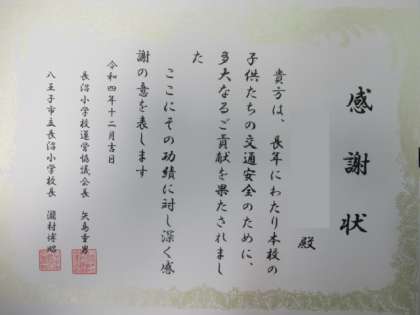 感謝状
殿
貴方は、長年にわたり本校の
子供たちの交通安全のために、
多大なるご貢献を果たされまし
た
ここにその功績に対し深く感
謝の意を表します
令和四年十二月吉日
長沼小学校運営協議会長 矢島重男
八王子市立長沼小学校長 瀧村博昭